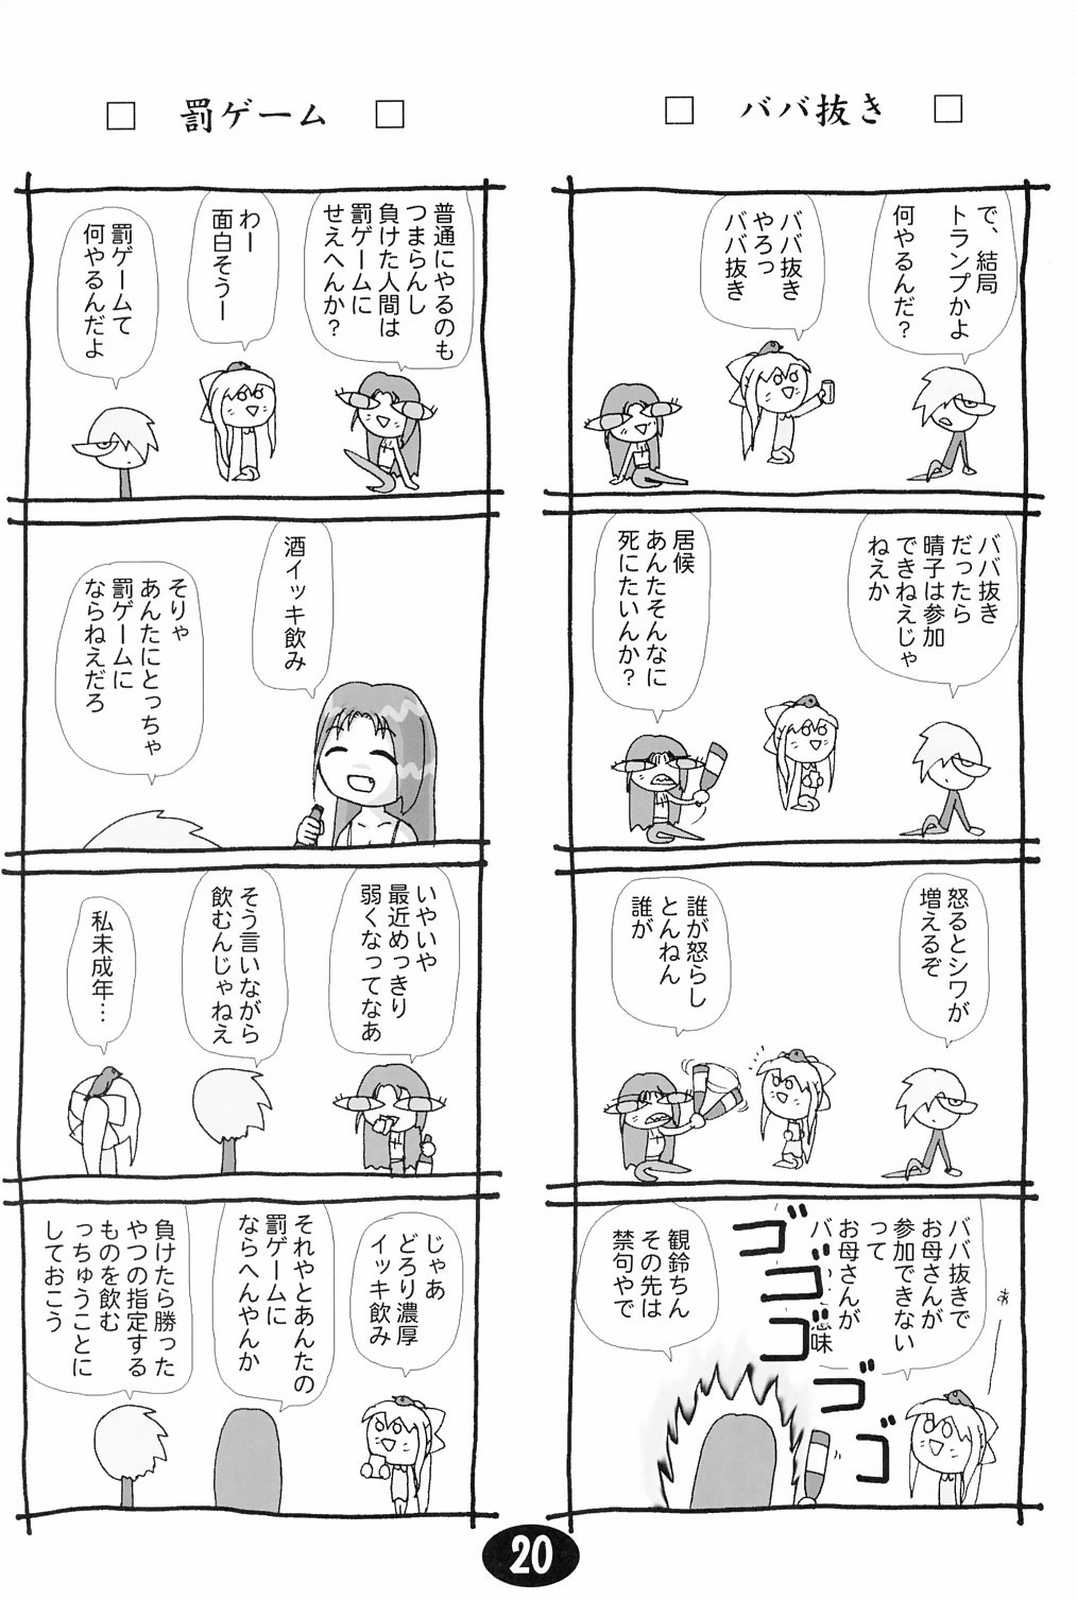 ババ抜き
で、結局
トランプかよ
何やるんだ？
ババ抜き
やろっ
ババ抜き
ババ抜き
だったら
晴子は参加
できねえじゃ
ねえか
居候
あんたそんなに
死にたいんか？
怒るとシワが
増えるぞ
誰が怒らし
とんねん
誰が
ババ抜きで
お母さんが
参加できない
って
お母さんが
バ
意味
あ
ゴゴゴゴゴ
観鈴ちん
その先は
禁句やで
罰ゲーム
普通にやるのも
つまらんし
負けた人間は
罰ゲームに
せえへんか？
わー
面白そうー
罰ゲームて
何やるんだよ
酒イッキ飲み
そりゃ
あんたにとっちゃ
罰ゲームに
ならねえだろ
いやいや
最近めっきり
弱くなってなあ
そう言いながら
飲むんじゃねえ
私未成年…
じゃあ
どろり濃厚
イッキ飲み
それやとあんたの
罰ゲームに
ならへんやんか
負けたら勝った
やつの指定する
ものを飲む
っちゅうことに
しておこう
20